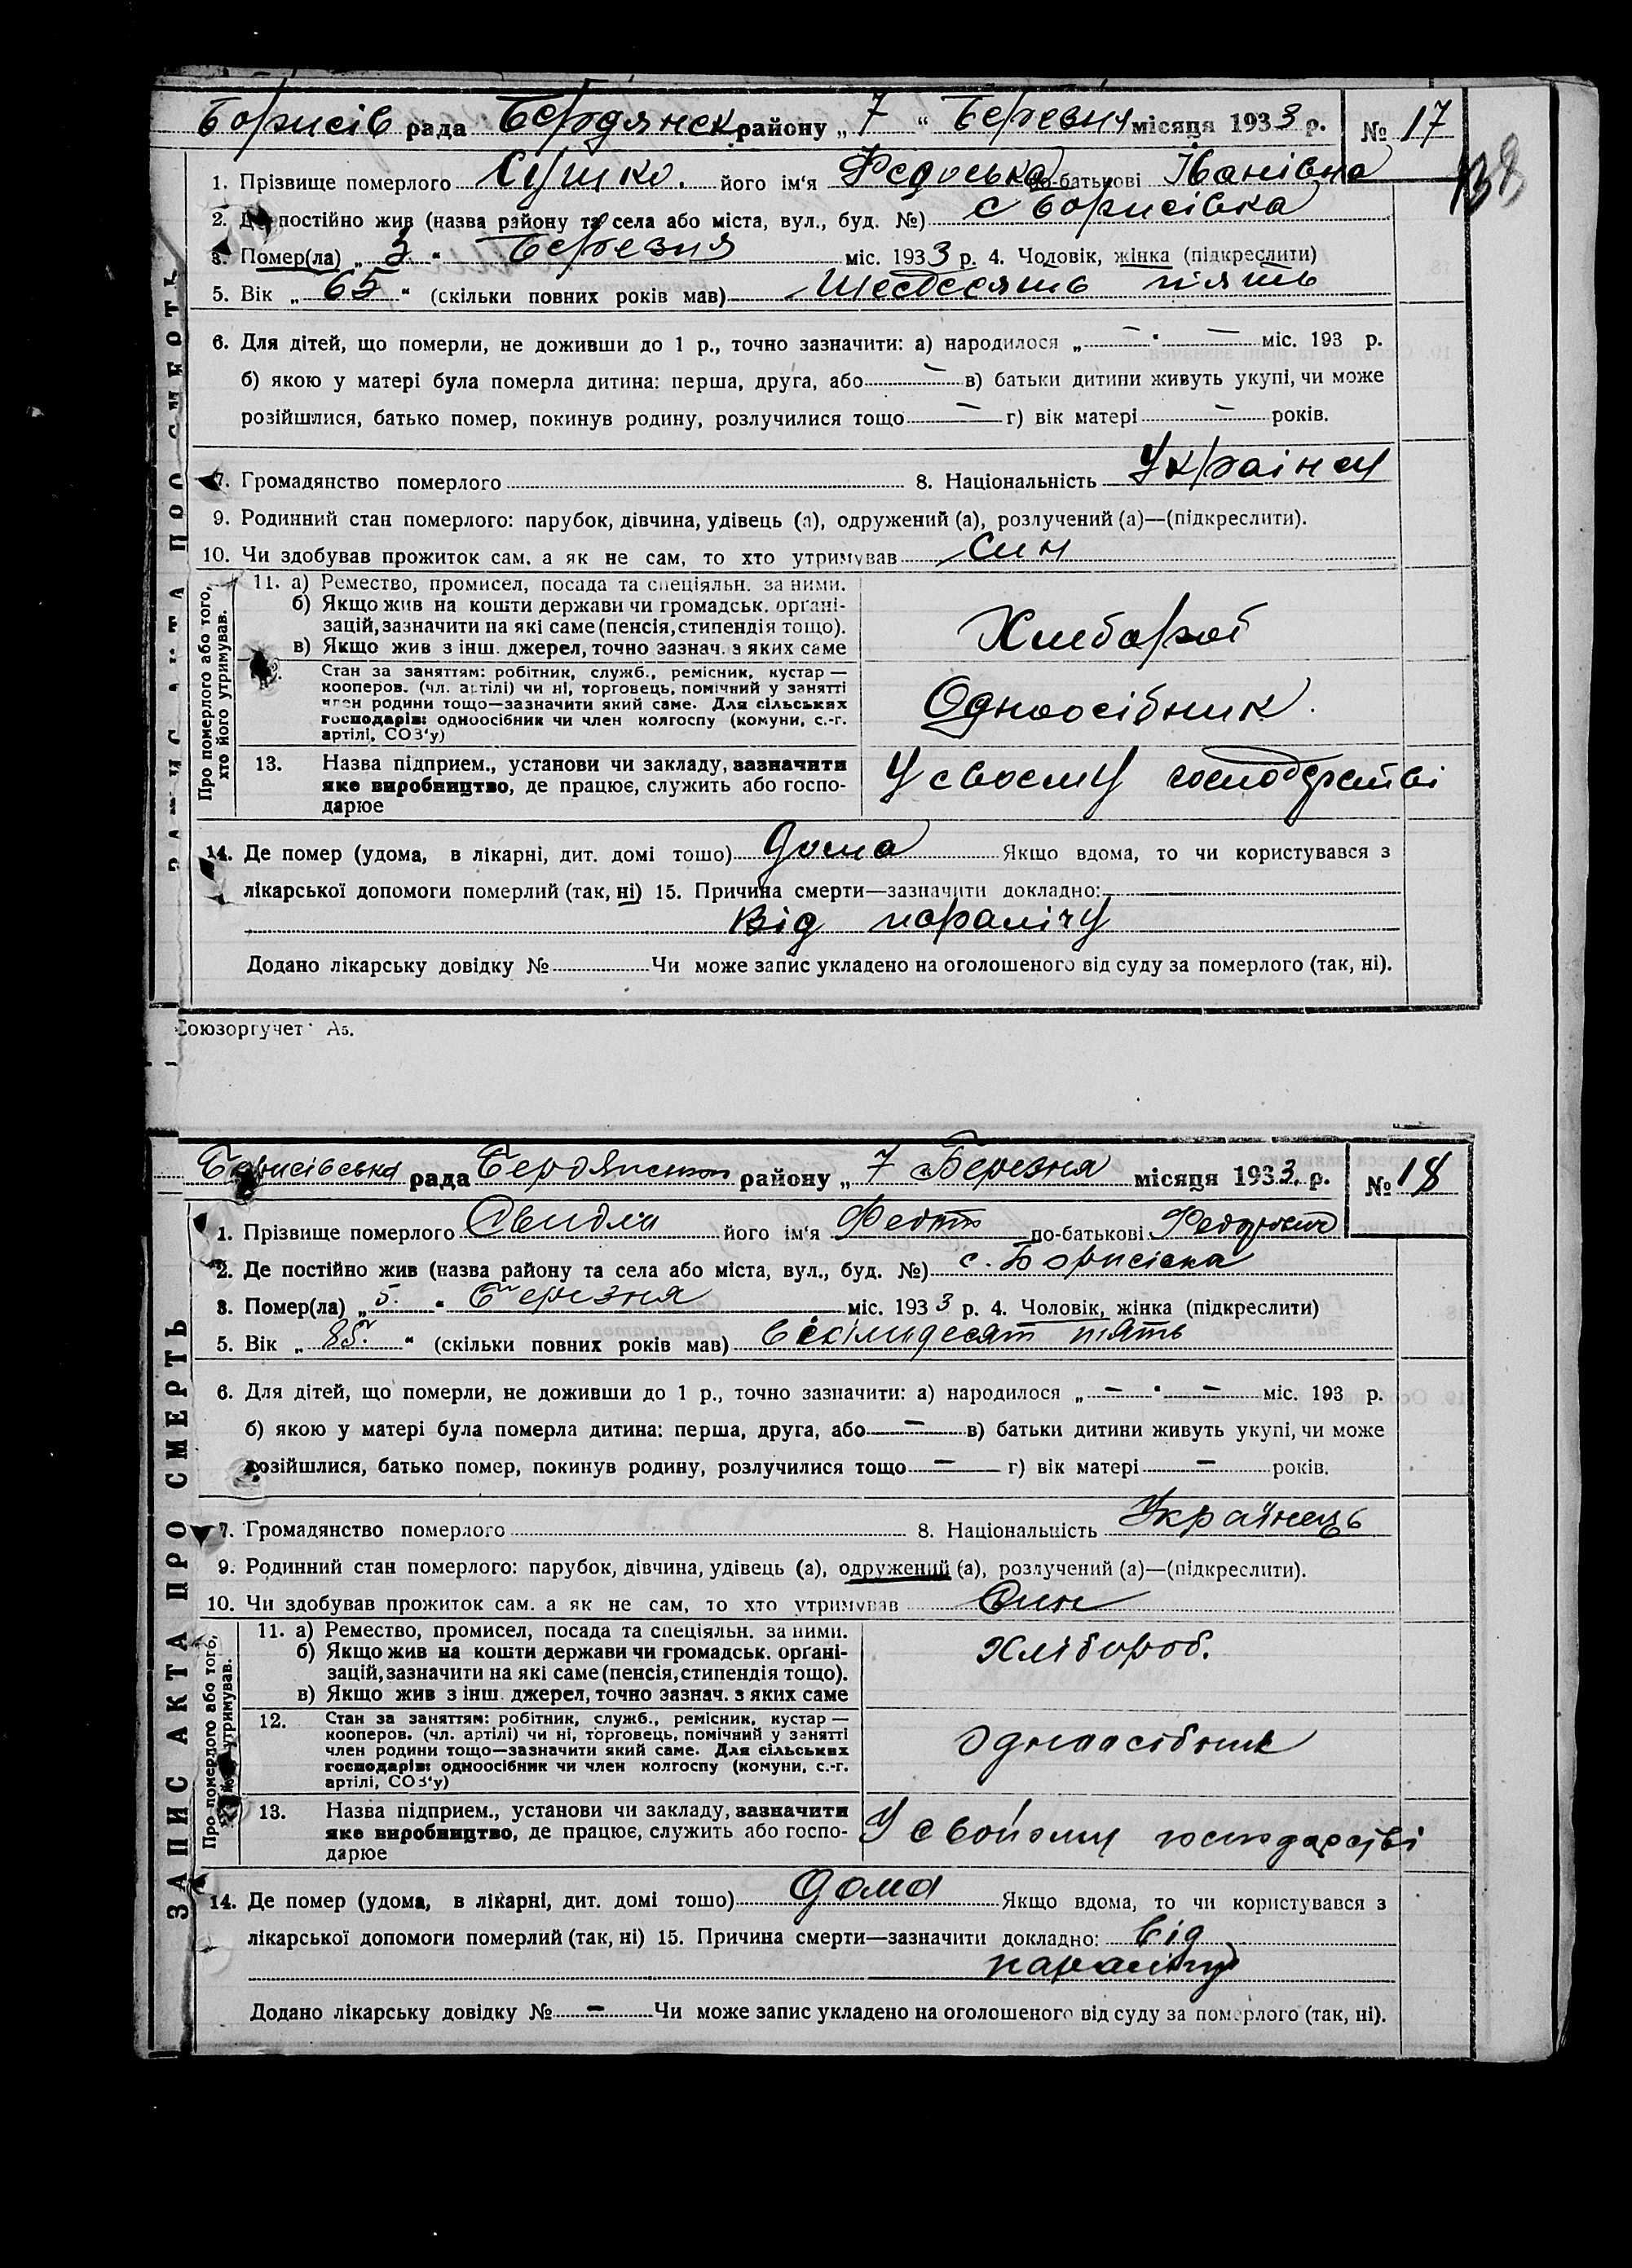 Борисів рада Бердянськ району „ 7 “ Березня місяця 1933 р. № 17
138
1. Прізвище померлого Сушко. його ім‘я Федоська по-батькові Іванівна
2. Де постійно жив (назва району та села або міста, вул., буд. №) с Борисівка
3. Помер(ла) „ 3 “ Березня міс. 1933 р. 4. Чоловік, жінка (підкреслити)
5. Вік „ 65 “ (скільки повних років мав) Шесдесять пять
6. Для дітей, що померли, не доживши до 1 р., точно зазначити: а) народилося „ — “ — міс. 193 р.
б) якою у матері була померла дитина: перша, друга, або — в) батьки дитини живуть укупі, чи може
розійшлися, батько помер, покинув родину, розлучилися тощо — г) вік матері — років.
7. Громадянство померлого 8. Національність Українц
9. Родинний стан померлого: парубок, дівчина, удівець (а), одружений (а), розлучений (а)—(підкреслити).
10. Чи здобував прожиток сам. а як не сам, то хто утримував син
Про померлого або того, хто його утримував.
11. а) Ремество, промисел, посада та спеціяльн. за ними.
б) Якщо жив на кошти держави чи громадськ. орґані-
зацій, зазначити на які саме (пенсія, стипендія тощо).
в) Якщо жив з інш. джерел, точно зазнач. з яких саме
Хлебороб
Стан за заняттям: робітник, служб., ремісник, кустар —
кооперов. (чл. артілі) чи ні, торговець, помічний у занятті
член родини тощо—зазначити який саме. Для сільських
господарів: одноосібник чи член колгоспу (комуни, с.-г.
артілі, СОЗ‘у)
Одноосібник.
13. Назва підприєм., установи чи закладу, зазначити
яке виробництво, де працює, служить або госпо-
дарюе
У своєму господарстві
14. Де помер (удома, в лікарні, дит. домі тошо) дома Якщо вдома, то чи користувався з
лікарської допомоги померлий (так, ні) 15. Причина смерти—зазначити докладно:
Від паралічу
Додано лікарську довідку № Чи може запис укладено на оголошеного від суду за померлого (так, ні).
Союзоргучет Аз.
ЗАПИС АКТА ПРО СМЕРТЬ
Борисівська рада Бердянськ району „ 7 “ Березня місяця 1933. р. № 18
1. Прізвище померлого його ім‘я по-батькові
2. Де постійно жив (назва району та села або міста, вул., буд. №) с. Борисівка
3. Помер(ла) „ 5. “ Березня міс. 1933 р. 4. Чоловік, жінка (підкреслити)
5. Вік „ 85. “ (скільки повних років мав) вісімдесят пять
6. Для дітей, що померли, не доживши до 1 р., точно зазначити: а) народилося „ — “ — міс. 193 р.
б) якою у матері була померла дитина: перша, друга, або — в) батьки дитини живуть укупі, чи може
розійшлися, батько помер, покинув родину, розлучилися тощо — г) вік матері — років.
7. Громадянство померлого 8. Національність Українець
9. Родинний стан померлого: парубок, дівчина, удівець (а), одружений (а), розлучений (а)—(підкреслити).
10. Чи здобував прожиток сам. а як не сам, то хто утримував Син
Про померлого або того, хто його утримував.
11. а) Ремество, промисел, посада та спеціяльн. за ними.
б) Якщо жив на кошти держави чи громадськ. орґані-
зацій, зазначити на які саме (пенсія, стипендія тощо).
в) Якщо жив з інш. джерел, точно зазнач. з яких саме
Хлібороб.
12. Стан за заняттям: робітник, служб., ремісник, кустар —
кооперов. (чл. артілі) чи ні, торговець, помічний у занятті
член родини тощо—зазначити який саме. Для сільських
господарів: одноосібник чи член колгоспу (комуни, с.-г.
артілі, СОЗ‘у)
одноосібник
13. Назва підприєм., установи чи закладу, зазначити
яке виробництво, де працює, служить або госпо-
дарюе
У свойому господарстві
14. Де помер (удома, в лікарні, дит. домі тошо) дома Якщо вдома, то чи користувався з
лікарської допомоги померлий (так, ні) 15. Причина смерти—зазначити докладно: від
параличу
Додано лікарську довідку № — Чи може запис укладено на оголошеного від суду за померлого (так, ні).
ЗАПИС АКТА ПРО СМЕРТЬ